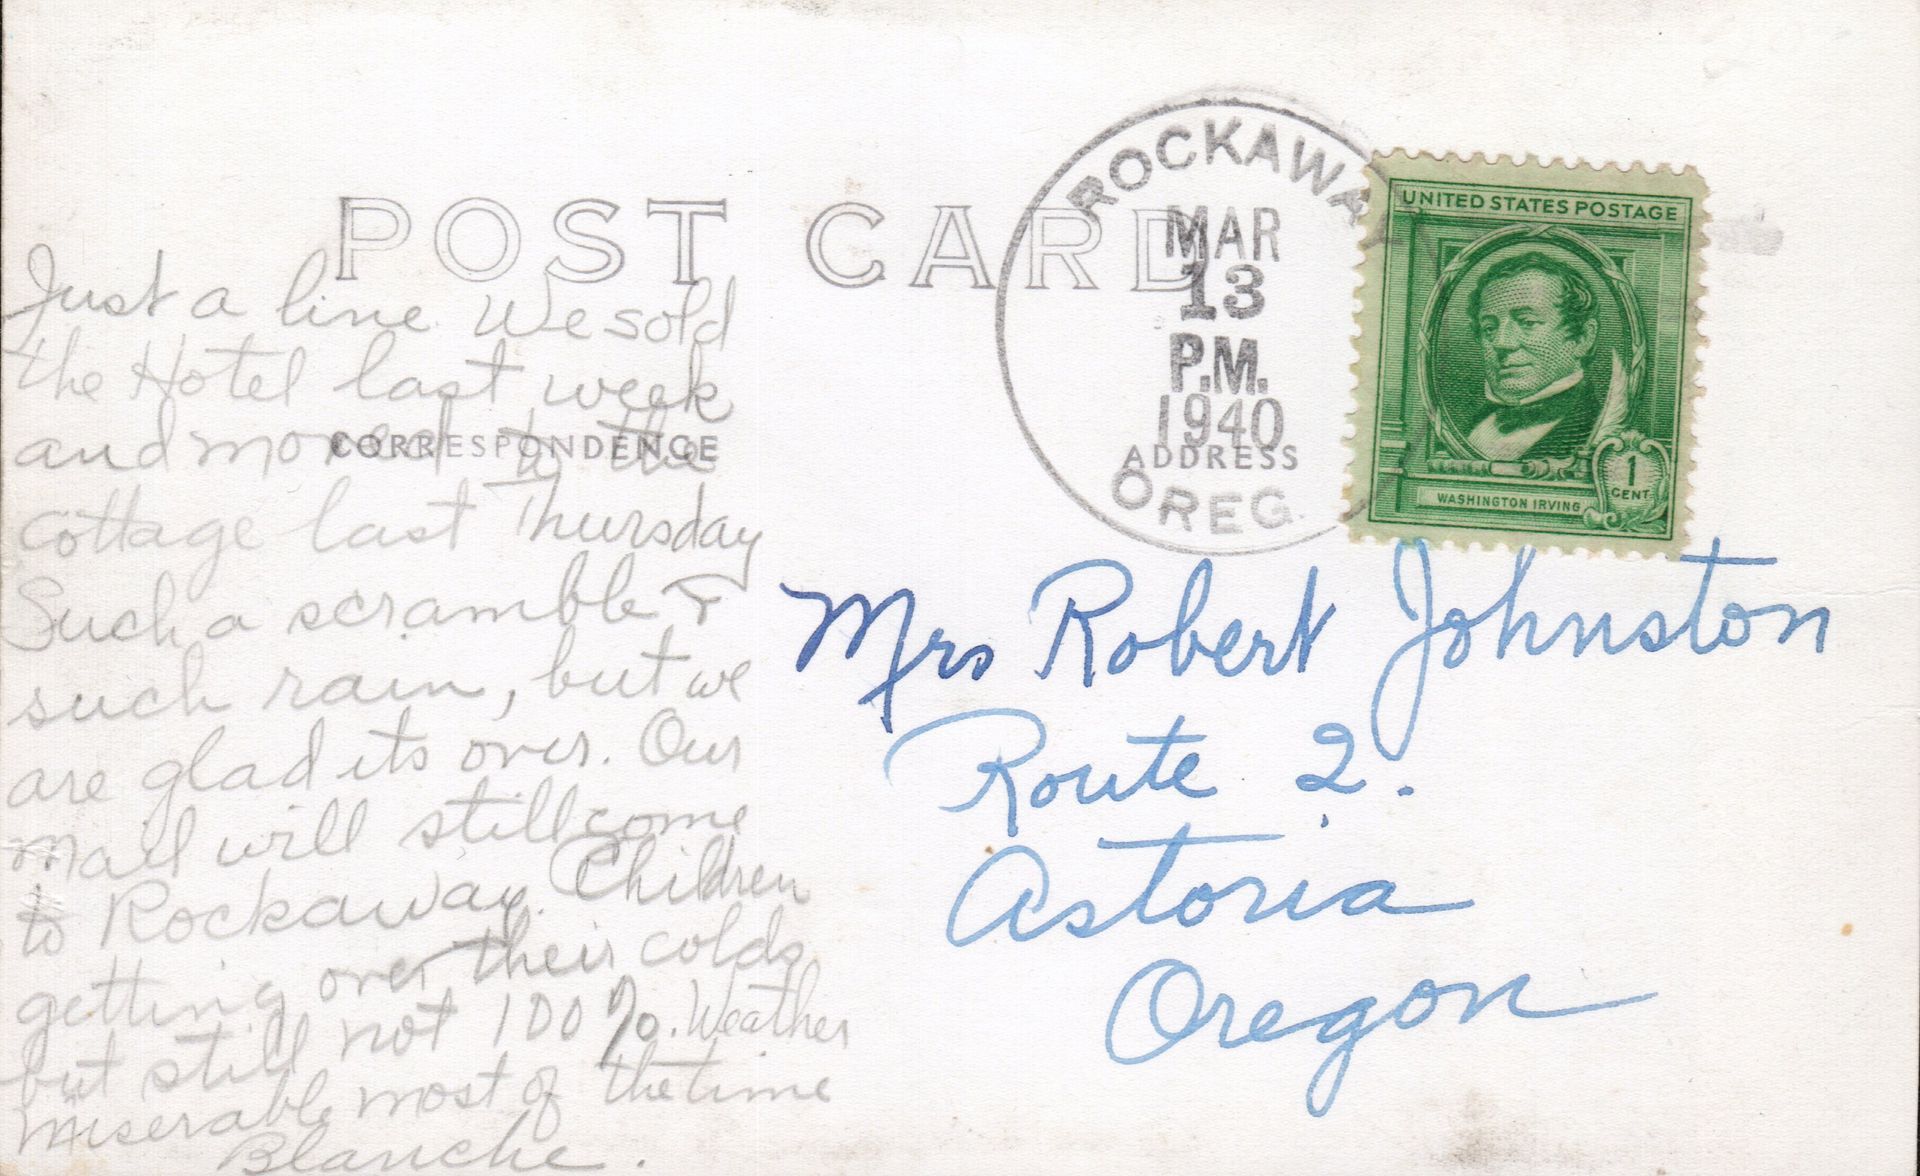 POST CARD
Just a line. We sold
the Hotel last week
and moved to the
cottage last Thursday
Such a scramble &
such rain, but we
are glad its over. Our
mail will still come
to Rockaway. Children
getting over their colds
but still not 100%. Weather
miserable most of the time
Blanche.
CORRESPONDENCE
ROCKAWAY
MAR
13
P.M.
1940
OREG.
ADDRESS
UNITED STATES POSTAGE
WASHINGTON IRVING
1
CENT
Mrs Robert Johnston
Route 2.
Astoria
Oregon